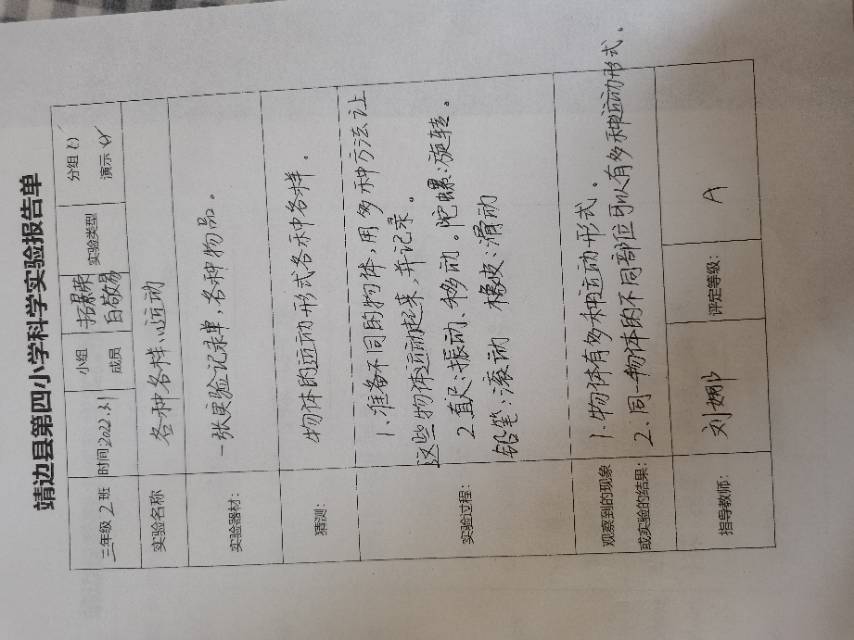 靖边县第四小学科学实验报告单
三年级2班 时间2022.3.1 小组成员 拓景荣 白敬易 实验类型 分组( ) 演示(√)
实验名称 各种各样的运动
实验器材: 一张实验记录单,各种物品。
猜测: 物体的运动形式各种各样。
实验过程: 1、准备不同的物体,用多种方法让
这些物体运动起来,并记录。
2、直尺:振动、移动。陀螺:旋转。
铅笔:滚动 橡皮:滑动
观察到的现象 1、物体有多种运动形式。
或实验的结果: 2、同一物体的不同部位可以有多种运动形式。
指导教师: 刘娜 评定等级: A